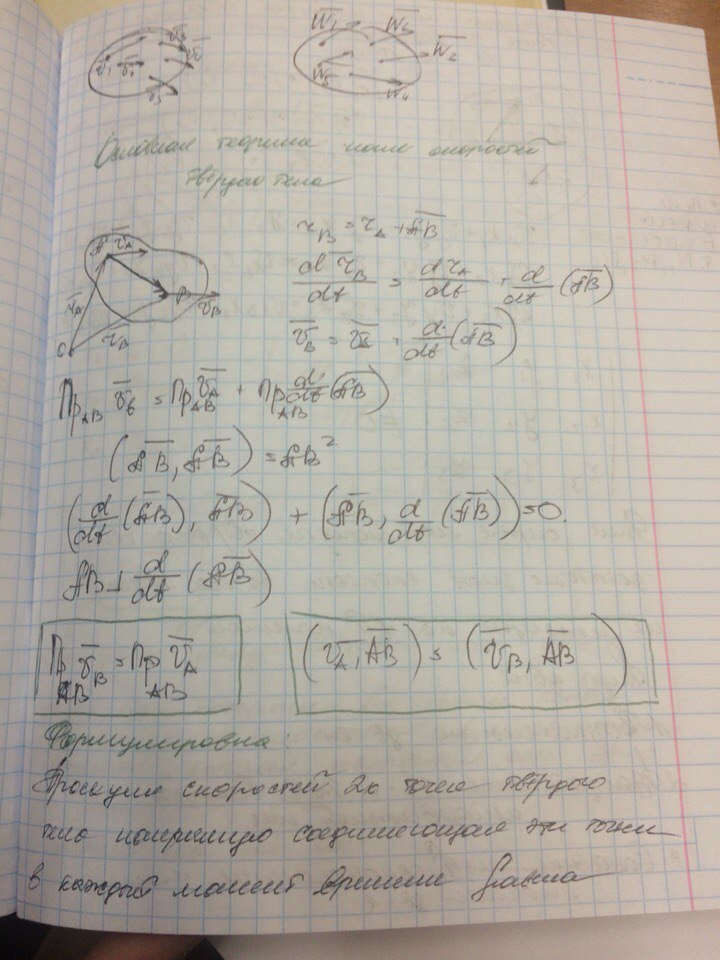 v̄₁ v̄₂ v̄₃ v̄
W̄₁ W̄₃ W̄₂
W̄₅ W̄₄
Основная теорема поля скоростей
твердого тела
A v̄_A
r̄_A B v̄_B
O r̄_B
r_B = r_A + A̅B̅
d r̄_B / dt = d r_A / dt + d/dt (A̅B̅)
v̄_B = v̄_A + d/dt (A̅B̅)
Пр_AB v̄_B = Пр_AB v̄_A + Пр_AB d/dt (A̅B̅)
(A̅B̅, A̅B̅) = AB²
(d/dt (A̅B̅), A̅B̅) + (A̅B̅, d/dt (A̅B̅)) = 0.
AB ⊥ d/dt (A̅B̅)
Пр_AB v̄_B = Пр_AB v̄_A
(v̄_A, A̅B̅) = (v̄_B, A̅B̅)
Формулировка:
Проекция скоростей 2х точек твёрдого
тела на прямую соединяющая эти точки
в каждый момент времени равна